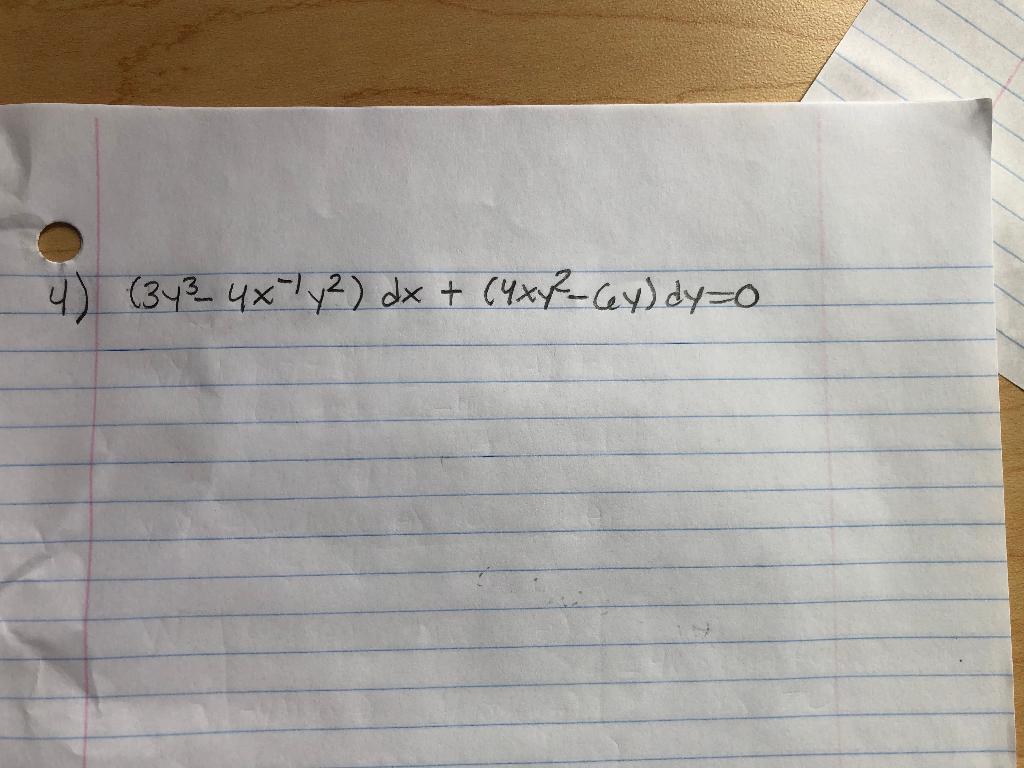 4) (3y³ - 4x⁻¹y²) dx + (4xy² - 6y) dy = 0